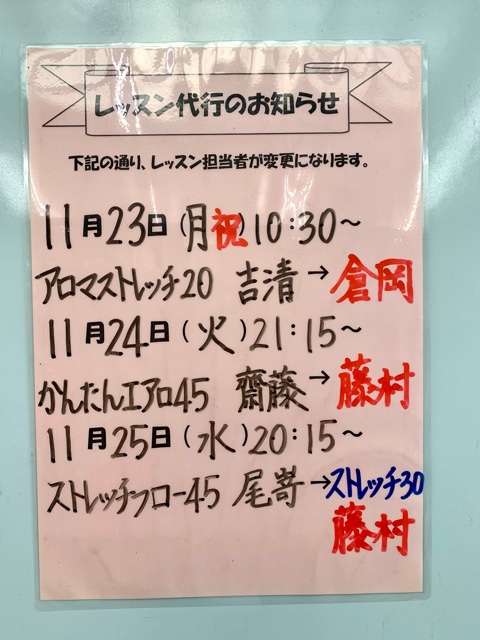 レッスン代行のお知らせ
下記の通り、レッスン担当者が変更になります。
11月23日(月祝)10:30～
アロマストレッチ20 吉清→倉岡
11月24日(火)21:15～
かんたんエアロ45 齋藤→藤村
11月25日(水)20:15～
ストレッチフロー45 尾嵜→ストレッチ30
藤村